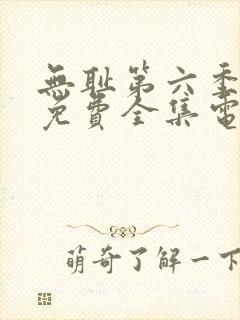 無耻第六季
免費全集電
萌奇了解一下